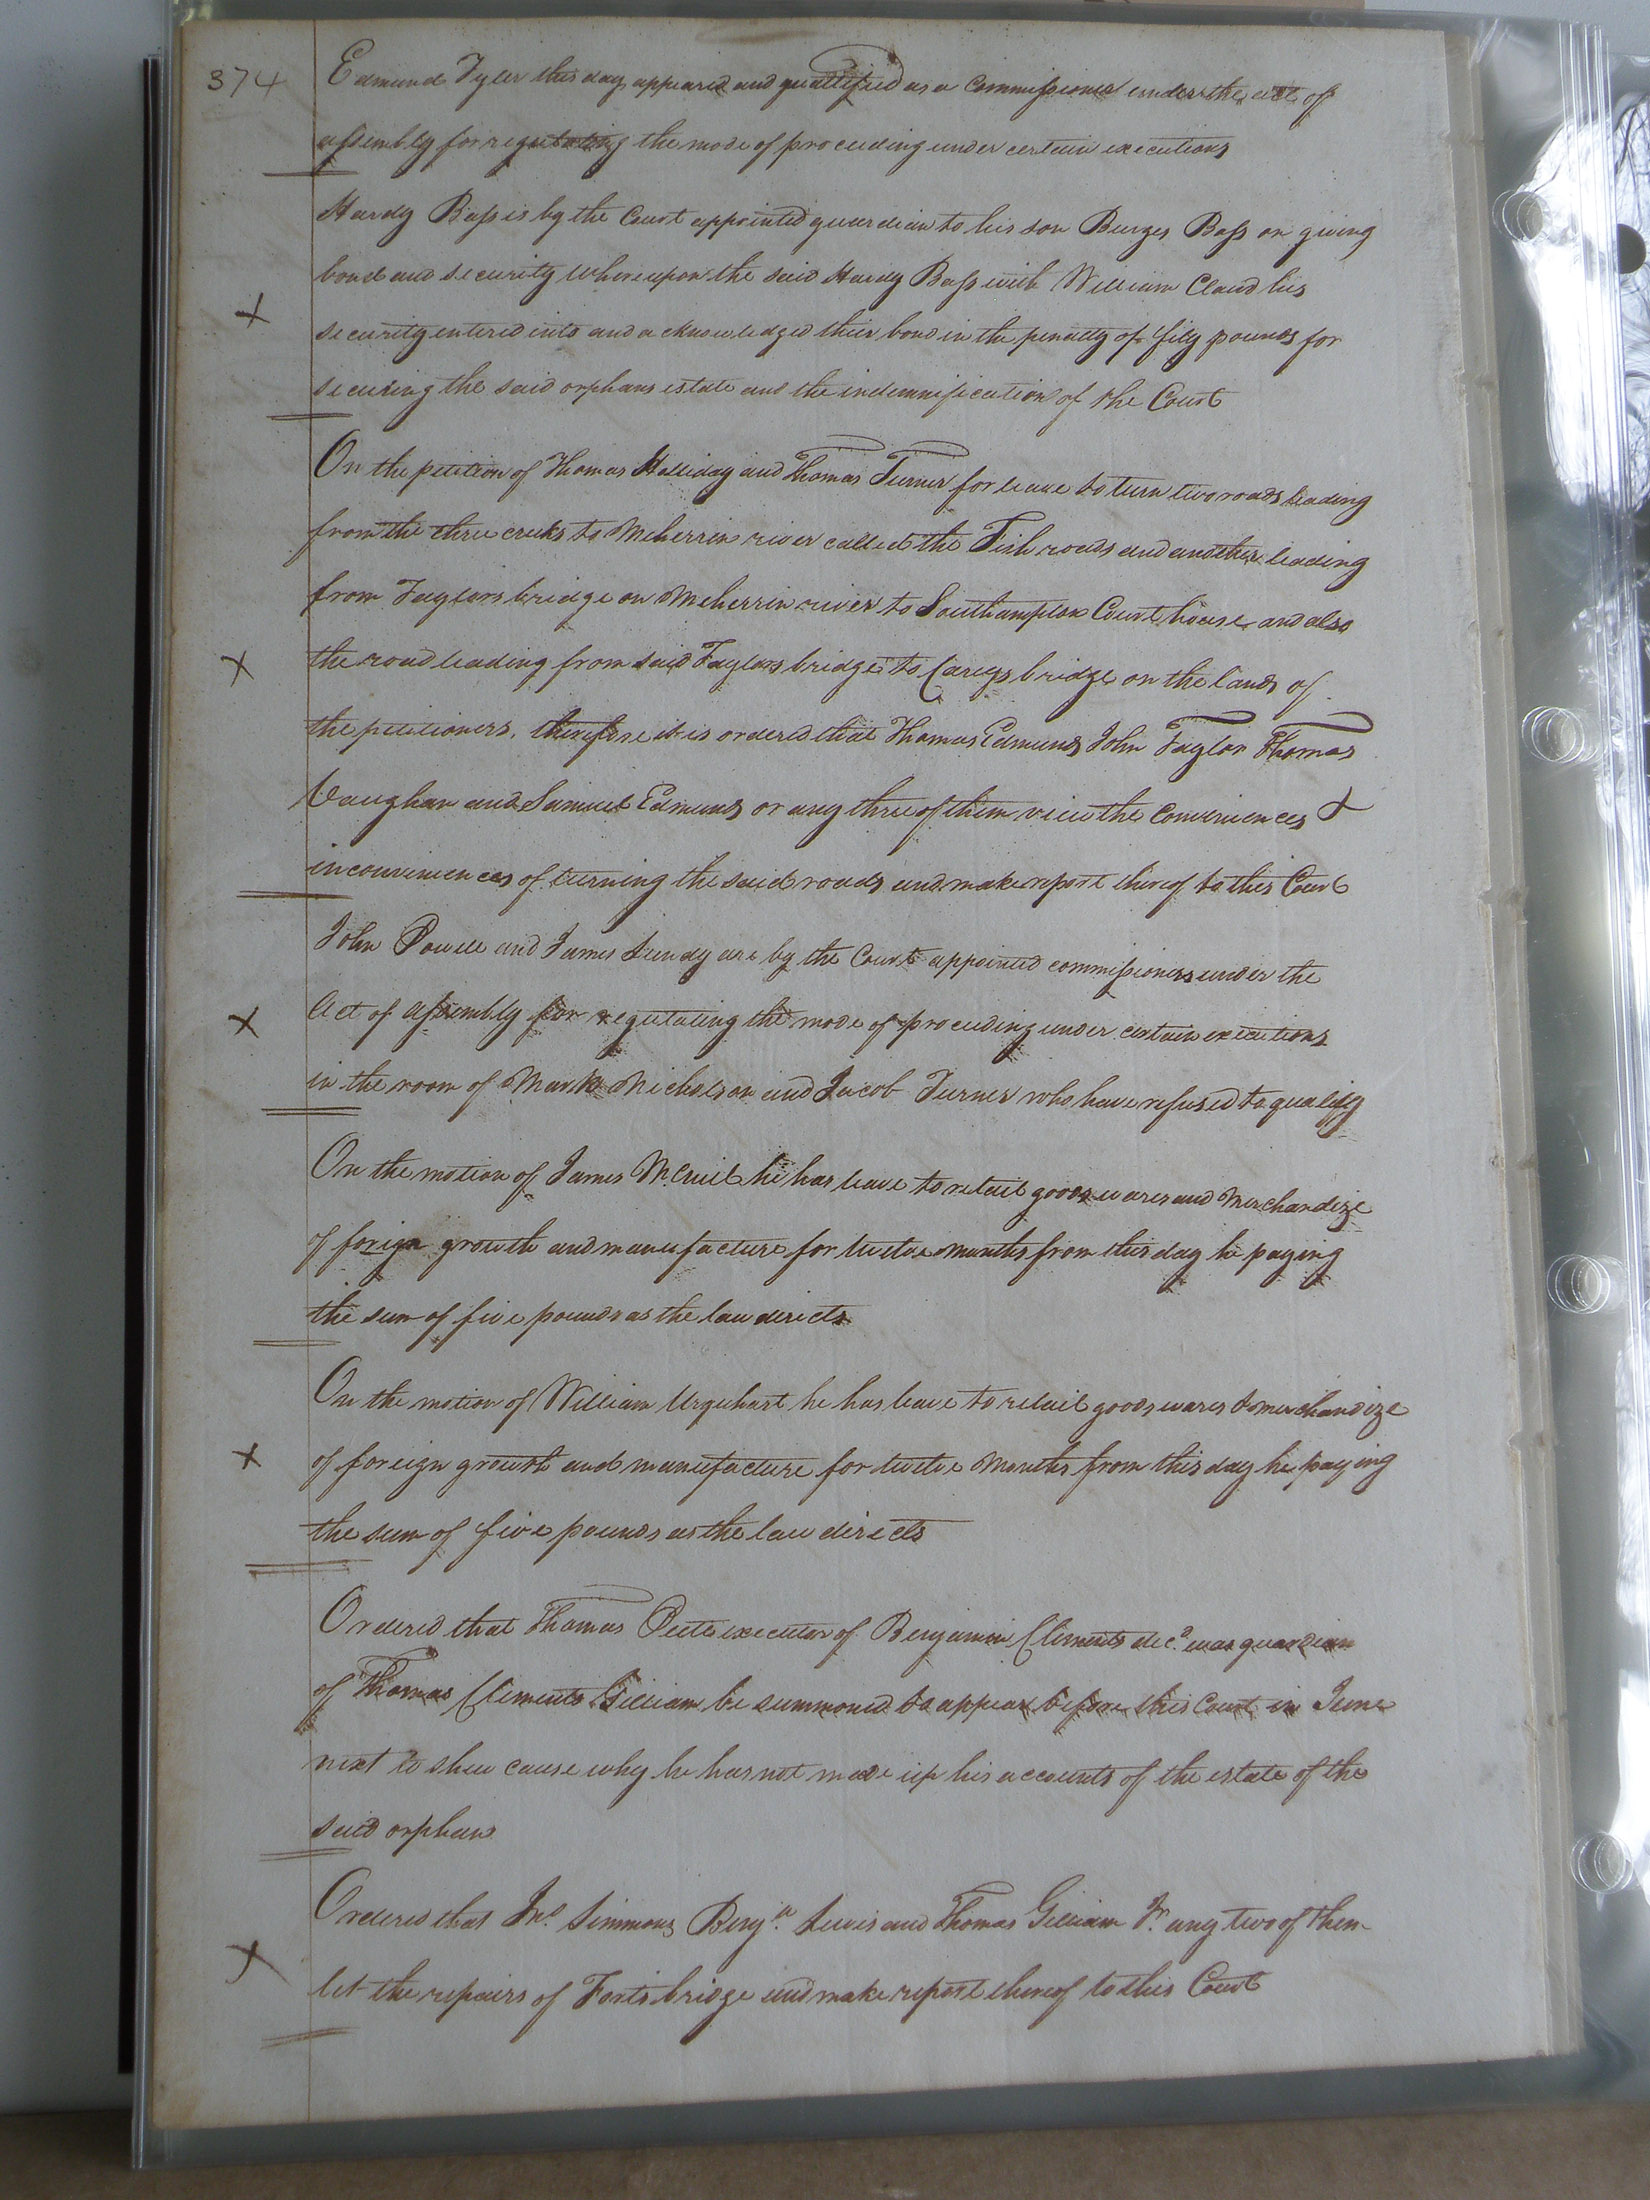 374
Edmund Tyler this day appeared and quallified as a Commissioner under the act of
assembly for regulating the mode of proceeding under certain executions
Hardy Bass is by the Court appointed guardian to his son Burges Bass on giving
bond and security whereupon the said Hardy Bass with William Claud his
security entered into and acknowledged their bond in the penalty of fifty pounds for
securing the said orphans estate and the indemnification of the Court
On the petition of Thomas Holliday and Thomas Turner for leave to turn two roads leading
from the three creeks to Meherrin river called the Fish roads and another leading
from Taylors bridge on Meherrin river to Southampton Court house and also
the road leading from said Taylors bridge to Careys bridge on the lands of
the petitioners, therefore it is ordered that Thomas Edmunds John Taylor Thomas
Vaughan and Samuel Edmunds or any three of them view the Conveniences &
inconveniences of turning the said roads and make report thereof to this Court
John Powell and James Lundy are by the Court appointed commissioners under the
Act of assembly for regulating the mode of proceeding under certain executions
in the room of Mark Nicholson and Jacob Turner who have refused to qualify
On the motion of James McNeil he has leave to retail goods wares and Merchandize
of forign growth and manufacture for twelve months from this day he paying
the sum of five pounds as the law directs
On the motion of William Urquhart he has leave to retail goods wares & merchandize
of foreign growth and manufacture for twelve Months from this day he paying
the sum of five pounds as the law directs
Ordered that Thomas Peete executor of Benjamin Clements decd. was guardian
of Thomas Clements Gilliam be summoned to appear before this Court in June
next to shew cause why he has not made up his accounts of the estate of the
said orphan
Ordered that Jno. Simmons Benja. Lewis and Thomas Gilliam Jr. any two of them
let the repairs of Forts bridge and make report thereof to this Court